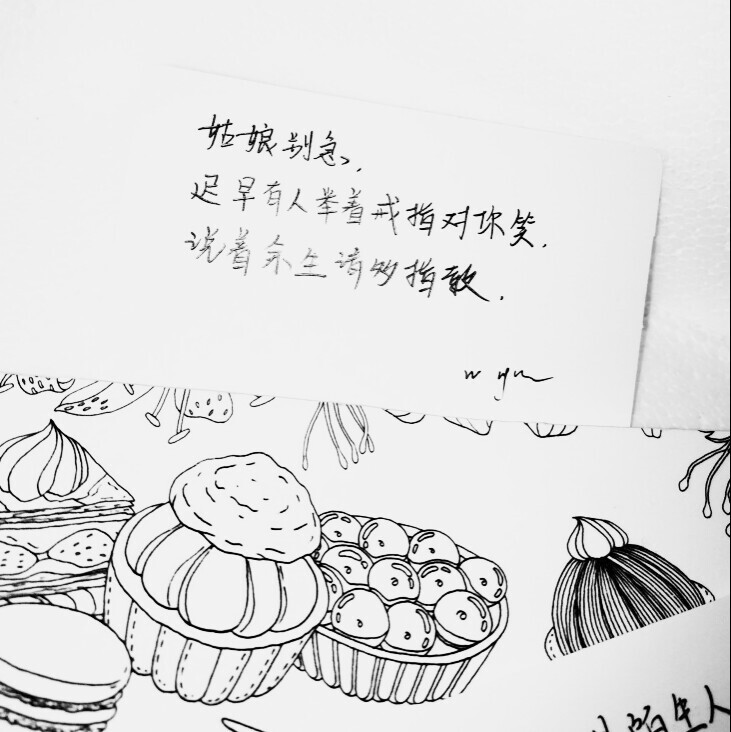 姑娘别急、
迟早有人举着戒指对你笑.
说着余生请多指教.
陌生人